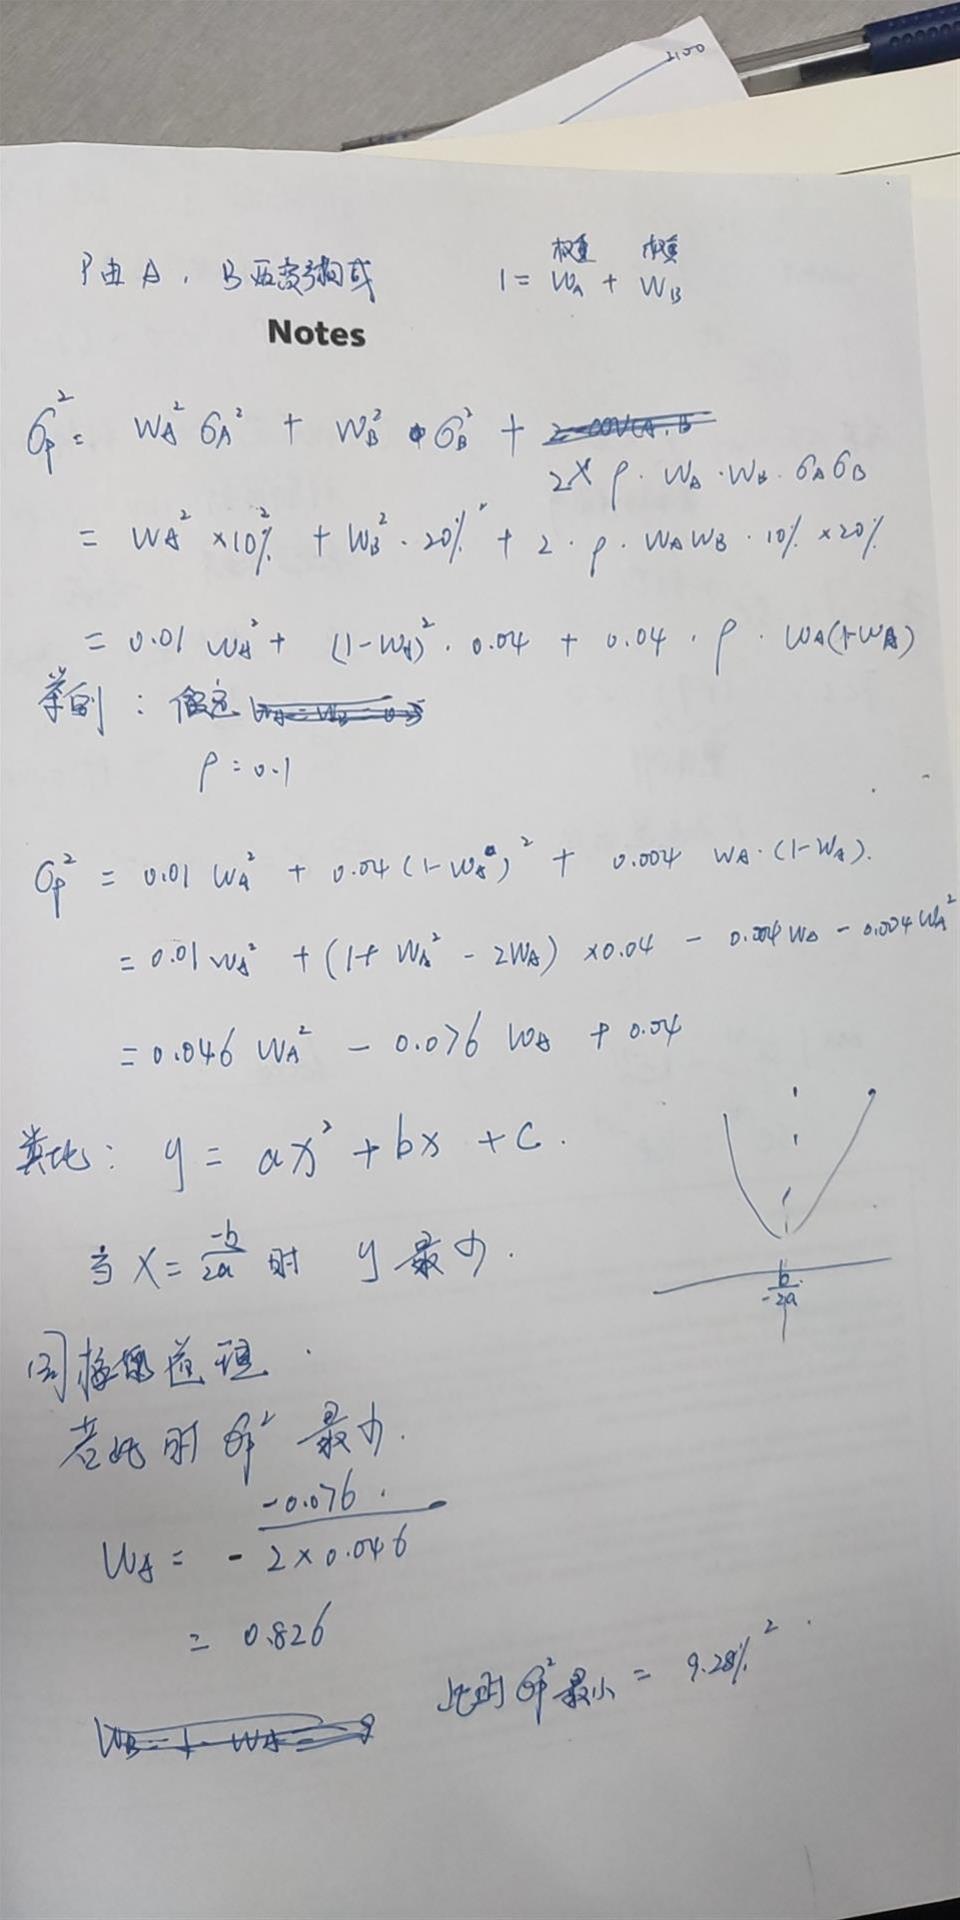 2100
权重 权重
P由A、B两资产构成 1 = WA + WB
Notes
σp² = WA² σA² + WB² · σB² +
2× ρ · WA · WB · σA σB
= WA² ×10%² + WB² · 20%² + 2 · ρ · WA WB · 10% × 20%
= 0.01 WA² + (1-WA)² · 0.04 + 0.04 · ρ · WA(1-WA)
举例：假定
ρ = 0.1
σp² = 0.01 WA² + 0.04 (1-WA)² + 0.004 WA·(1-WA).
= 0.01 WA² + (1+ WA² - 2WA) ×0.04 - 0.004 WA - 0.004 WA²
= 0.046 WA² - 0.076 WA + 0.04
类比： y = ax² + bx + c.
当 X = -b/2a 时 y 最小.
- b/2a
同样的道理.
若此时 σp² 最小.
WA = - -0.076/2×0.046
= 0.826
此时 σp² 最小 = 9.28%².